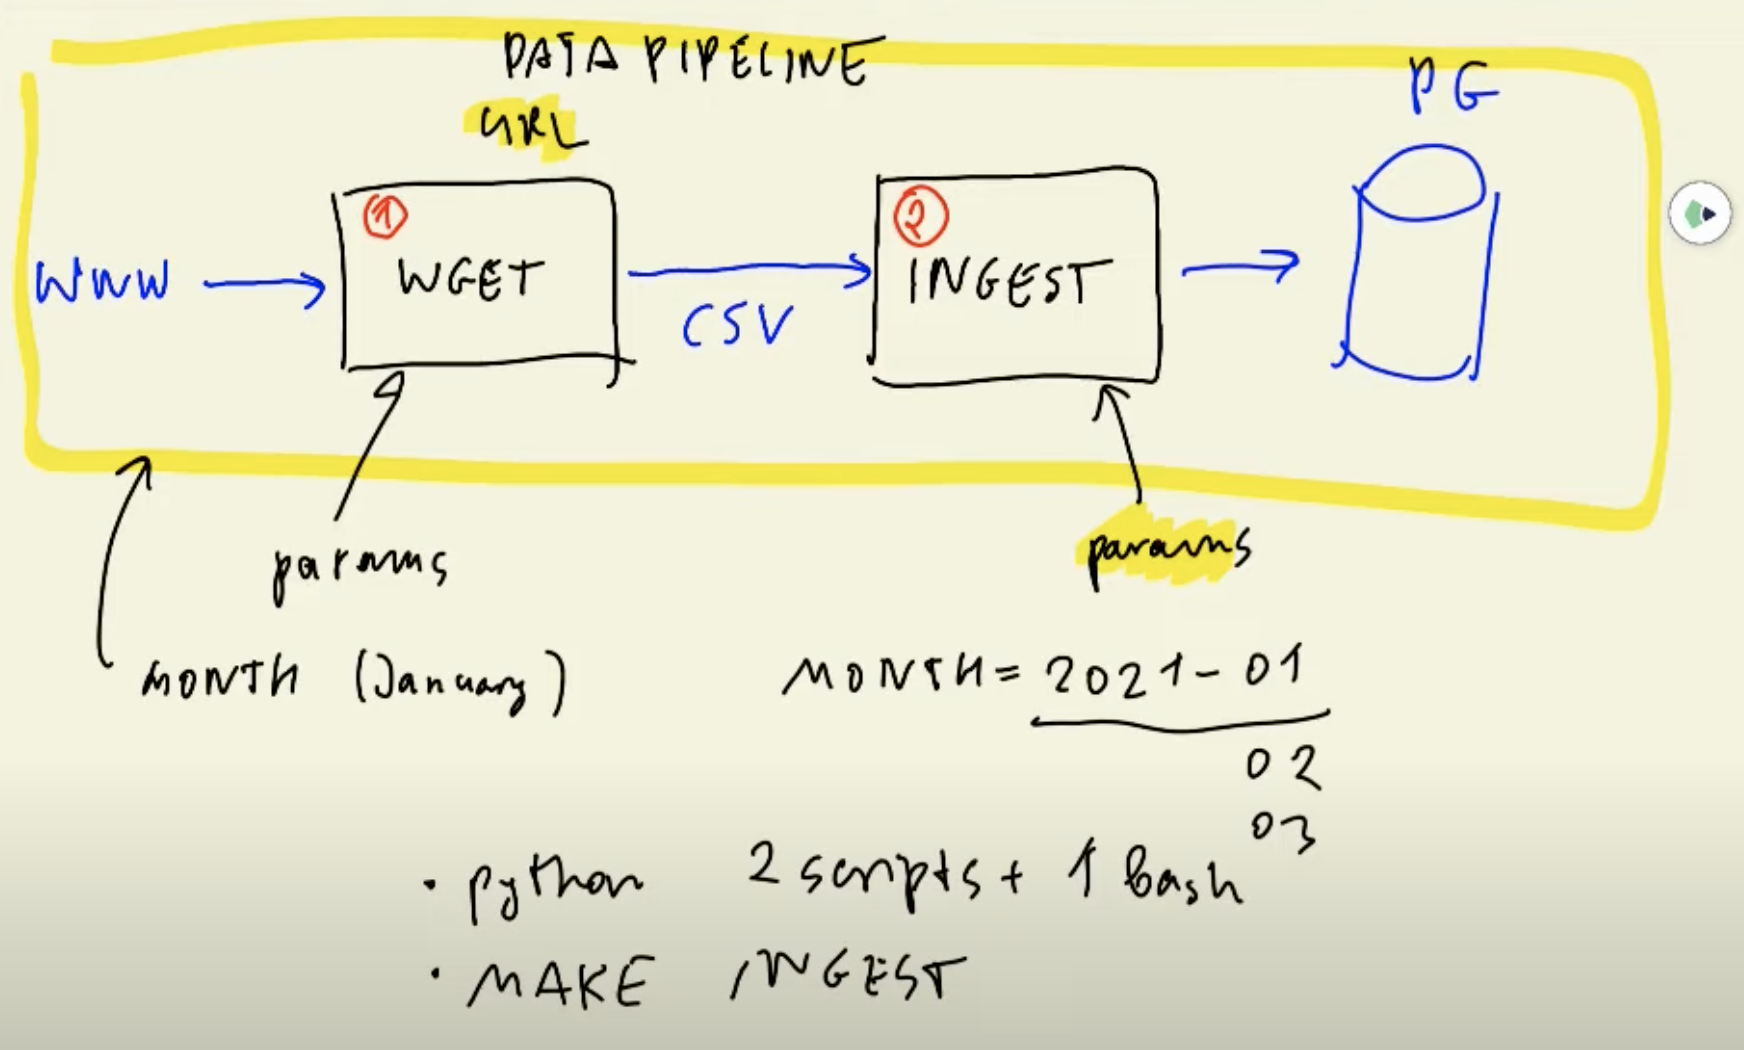 DATA PIPELINE
URL
PG
1
WGET
2
INGEST
WWW
CSV
params
params
MONTH (January)
MONTH = 2021-01
02
03
• python 2 scripts + 1 bash
• MAKE INGEST